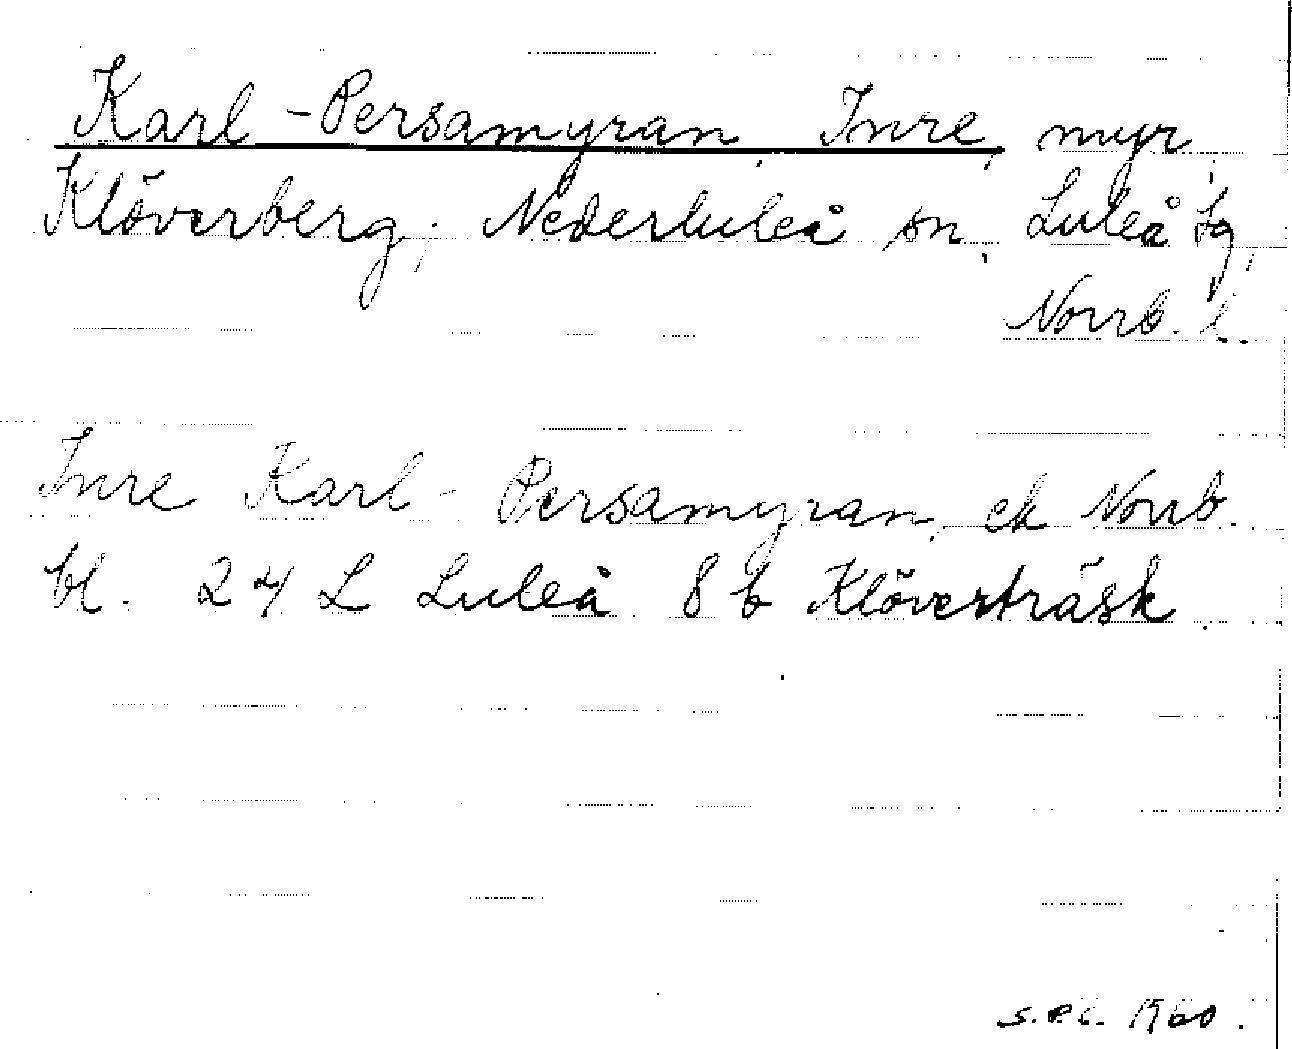 Karl-Persamyran, Inre, myr,
Klöverberg, Nederluleå sn, Luleå tg,
Norrb. l.
Inre Karl-Persamyran, ek Norrb.
bl. 24 L Luleå 8 b Klöverträsk.
1960.